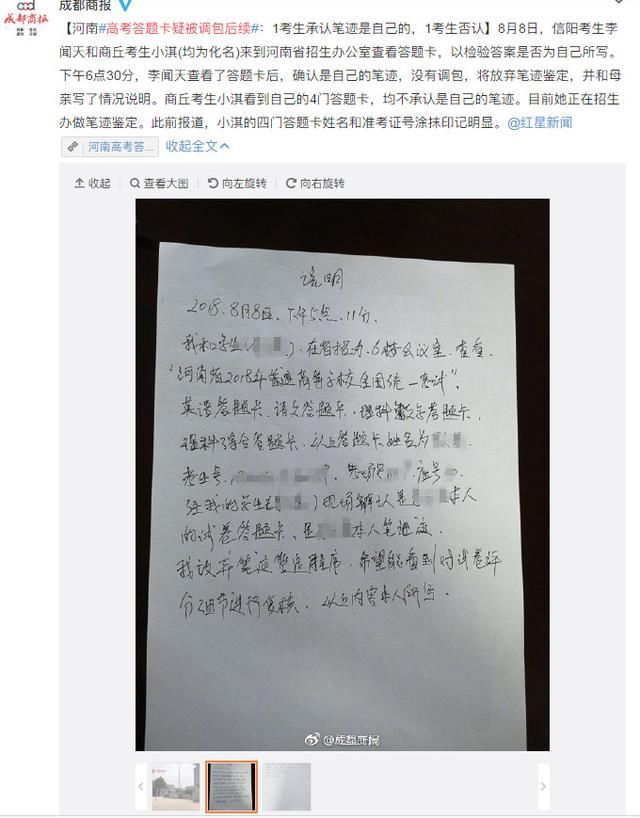 成都商报
成都商报
【河南#高考答题卡疑被调包后续#：1考生承认笔迹是自己的，1考生否认】8月8日，信阳考生李
闻天和商丘考生小淇(均为化名)来到河南省招生办公室查看答题卡，以检验答案是否为自己所写。
下午6点30分，李闻天查看了答题卡后，确认是自己的笔迹，没有调包，将放弃笔迹鉴定，并和母
亲写了情况说明。商丘考生小淇看到自己的4门答题卡，均不承认是自己的笔迹。目前她正在招生
办做笔迹鉴定。此前报道，小淇的四门答题卡姓名和准考证号涂抹印记明显。@红星新闻
河南高考答... 收起全文
收起 查看大图 向左旋转 向右旋转
说明
2018.8月8日、下午5点.11分、
我和学生( )、在省招办.6楼会议室.查看.
"河南省2018年普通高等学校全国统一考试"、
英语答题卡、语文答题卡、理科数学答题卡、
理科综合答题卡、以上答题卡姓名为
考生号、 考场号 座号
经我的学生 ( )现场辨认是 本人
的试卷答题卡、是 本人笔迹
我放弃笔迹鉴定程序、希望能看到对试卷评
分细节进行复核、以上内容本人所写、
@成都商报